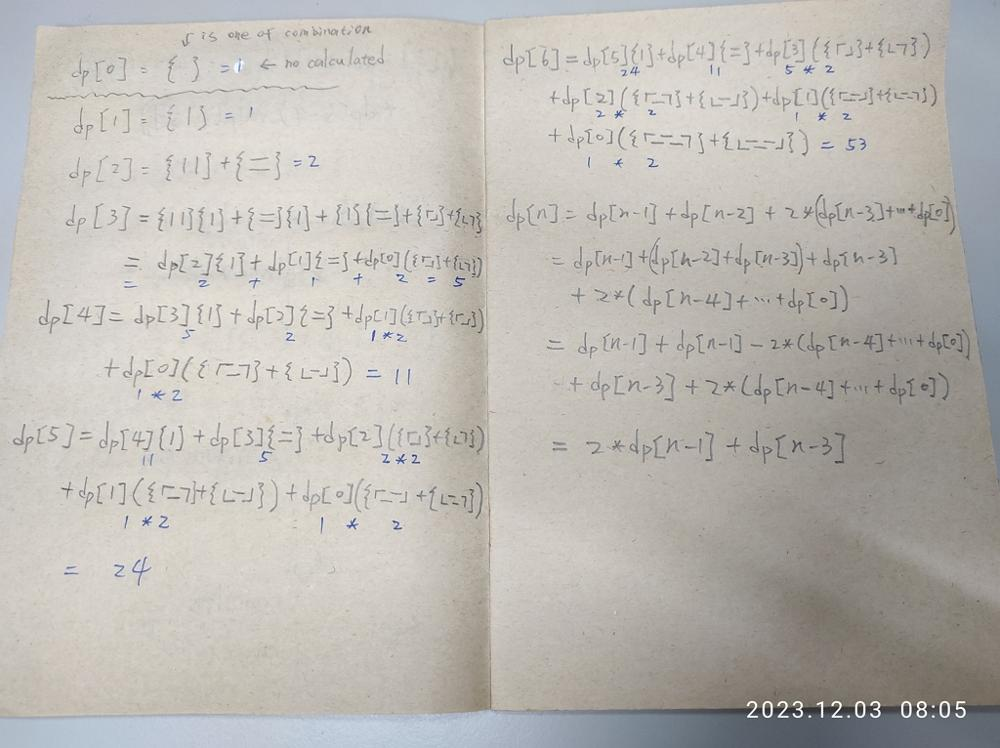 ↓ is one of combination
dp[0] = { } = 1 ← no calculated
dp[1] = {|} = 1
dp[2] = {||} + {二} = 2
dp[3] = {||}{|} + {=}{|} + {|}{=} + {「」} + {L7}
= dp[2]{|} + dp[1]{=} + dp[0]({「」} + {L7})
= 2 + 1 + 2 = 5
dp[4] = dp[3]{|} + dp[2]{=} + dp[1]({「」} + {「」})
5 2 1*2
+ dp[0]({「-7} + {L-」}) = 11
1 * 2
dp[5] = dp[4]{|} + dp[3]{=} + dp[2]({「」} + {L7})
11 5 2*2
+ dp[1]({「-7} + {L-」}) + dp[0]({「--」 + {L=7})
1 * 2 1 * 2
= 24
dp[6] = dp[5]{|} + dp[4]{=} + dp[3]({「」} + {L7})
24 11 5 * 2
+ dp[2]({「-7} + {L-」}) + dp[1]({「--」} + {L--7})
2 * 2 1 * 2
+ dp[0]({「---7} + {L---」}) = 53
1 * 2
dp[n] = dp[n-1] + dp[n-2] + 2*(dp[n-3] + ... + dp[0])
= dp[n-1] + (dp[n-2] + dp[n-3]) + dp[n-3]
+ 2*(dp[n-4] + ... + dp[0])
= dp[n-1] + dp[n-1] - 2*(dp[n-4] + ... + dp[0])
+ dp[n-3] + 2*(dp[n-4] + ... + dp[0])
= 2*dp[n-1] + dp[n-3]
2023.12.03 08:05